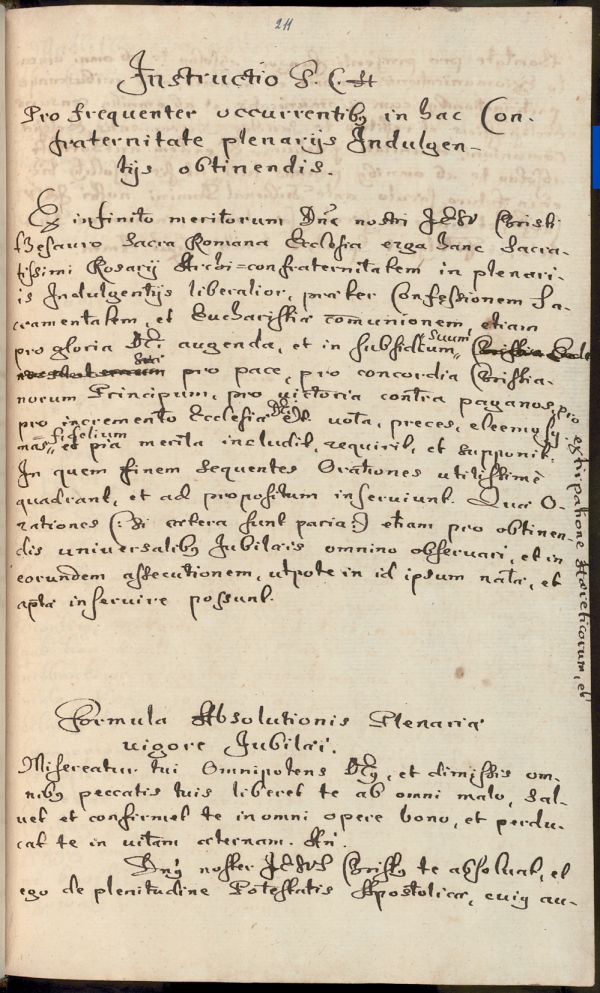 211
Instructio P. C. A
Pro frequenter occurrentibꝫ in hac Con-
fraternitate plenarijs Indulgen-
tijs obtinendis.
Ex infinito meritorum Dni nostri JESU Christi
thesauro Sacra Romana Ecclesia erga hanc Sacra-
tissimi Rosarij Archi=confraternitatem in plenari-
is Indulgentijs liberalior, præter Confessionem Sa-
cramentalem, et Eucharistiæ com̄unionem, etiam
pro gloria Dei augenda, et in subsidium suum
pro pace, pro concordia Christia-
norum Principum, pro victoria contra paganos, pro
extirpatione Hæreticorum, et
pro incremento Ecclesiæ Dei vota, preces, eleemosy-
nas fidelium et pia merita includit, requirit, et supponit.
In quem finem sequentes Orationes utilissimè
quadrant, et ad propositum inserviunt. Quæ O-
rationes (: si cætera sunt paria :) etiam pro obtinen-
dis universalibꝫ Jubilæis omnino observari, et in
eorundem assecutionem, utpote in id ipsum natæ, et
aptæ inservire possunt.
Formula Absolutionis Plenariæ
vigore Jubilæi.
Misereatur tui Omnipotens Deꝰ, et dimissis om-
nibꝫ peccatis tuis liberet te ab omni malo, sal-
vet et confirmet te in omni opere bono, et perdu-
cat te in vitam æternam. An̄.
Dnꝰ noster JESUS Christꝰ te absolvat, et
ego de plenitudine Potestatis Apostolicæ, cuiꝰ au-